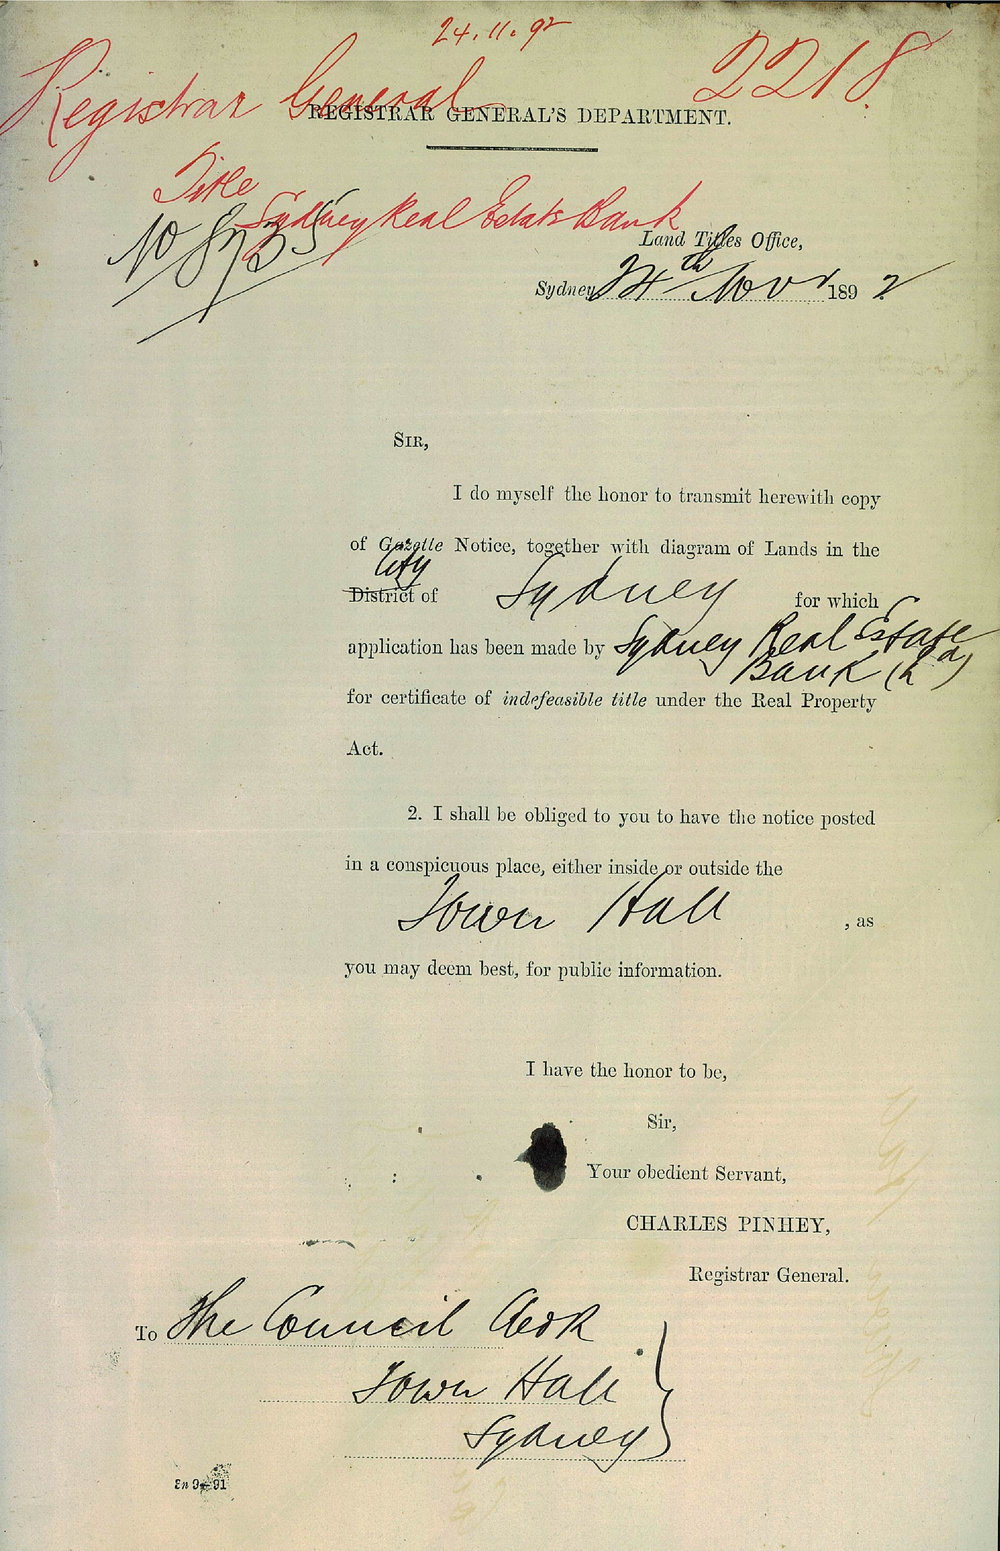 24.11.92
Registrar General 2218
REGISTRAR GENERAL'S DEPARTMENT.
Title
Sydney Real Estate Bank
No 8735
Land Titles Office,
Sydney 24th Novr 1892
SIR,
I do myself the honor to transmit herewith copy
of Gazette Notice, together with diagram of Lands in the
City
District of Sydney for which
application has been made by Sydney Real Estate
Bank (Ld)
for certificate of indefeasible title under the Real Property
Act.
2. I shall be obliged to you to have the notice posted
in a conspicuous place, either inside or outside the
Town Hall , as
you may deem best, for public information.
I have the honor to be,
Sir,
Your obedient Servant,
CHARLES PINHEY,
Registrar General.
To The Council Clerk
Town Hall
Sydney